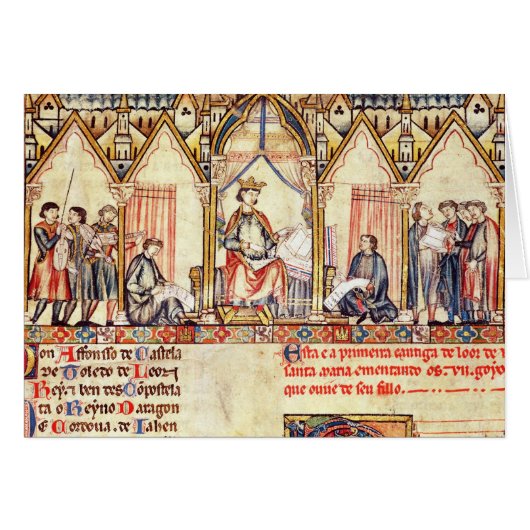 Don Affonsso de Castela
de Toledo de Leon
Rey e ben des Conpostela
ta o Reyno Daragon
E Cordoua de Iahen
Esta e a primeira cantiga de loor de
santa maria ementando os .vii. goyos
que ouue de seu fillo.